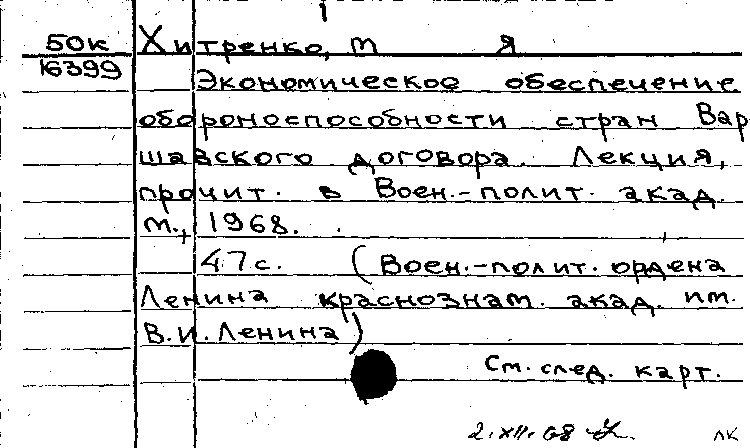 50к Хитренко, Т Я
16399 Экономическое обеспечение
обороноспособности стран Вар
шавского договора. Лекция,
прочит. в Воен.-полит. акад.
М., 1968.
47 с. (Воен.-полит. ордена
Ленина краснознам. акад. им.
В.И. Ленина)
См. след. карт.
2.XII.68
лк